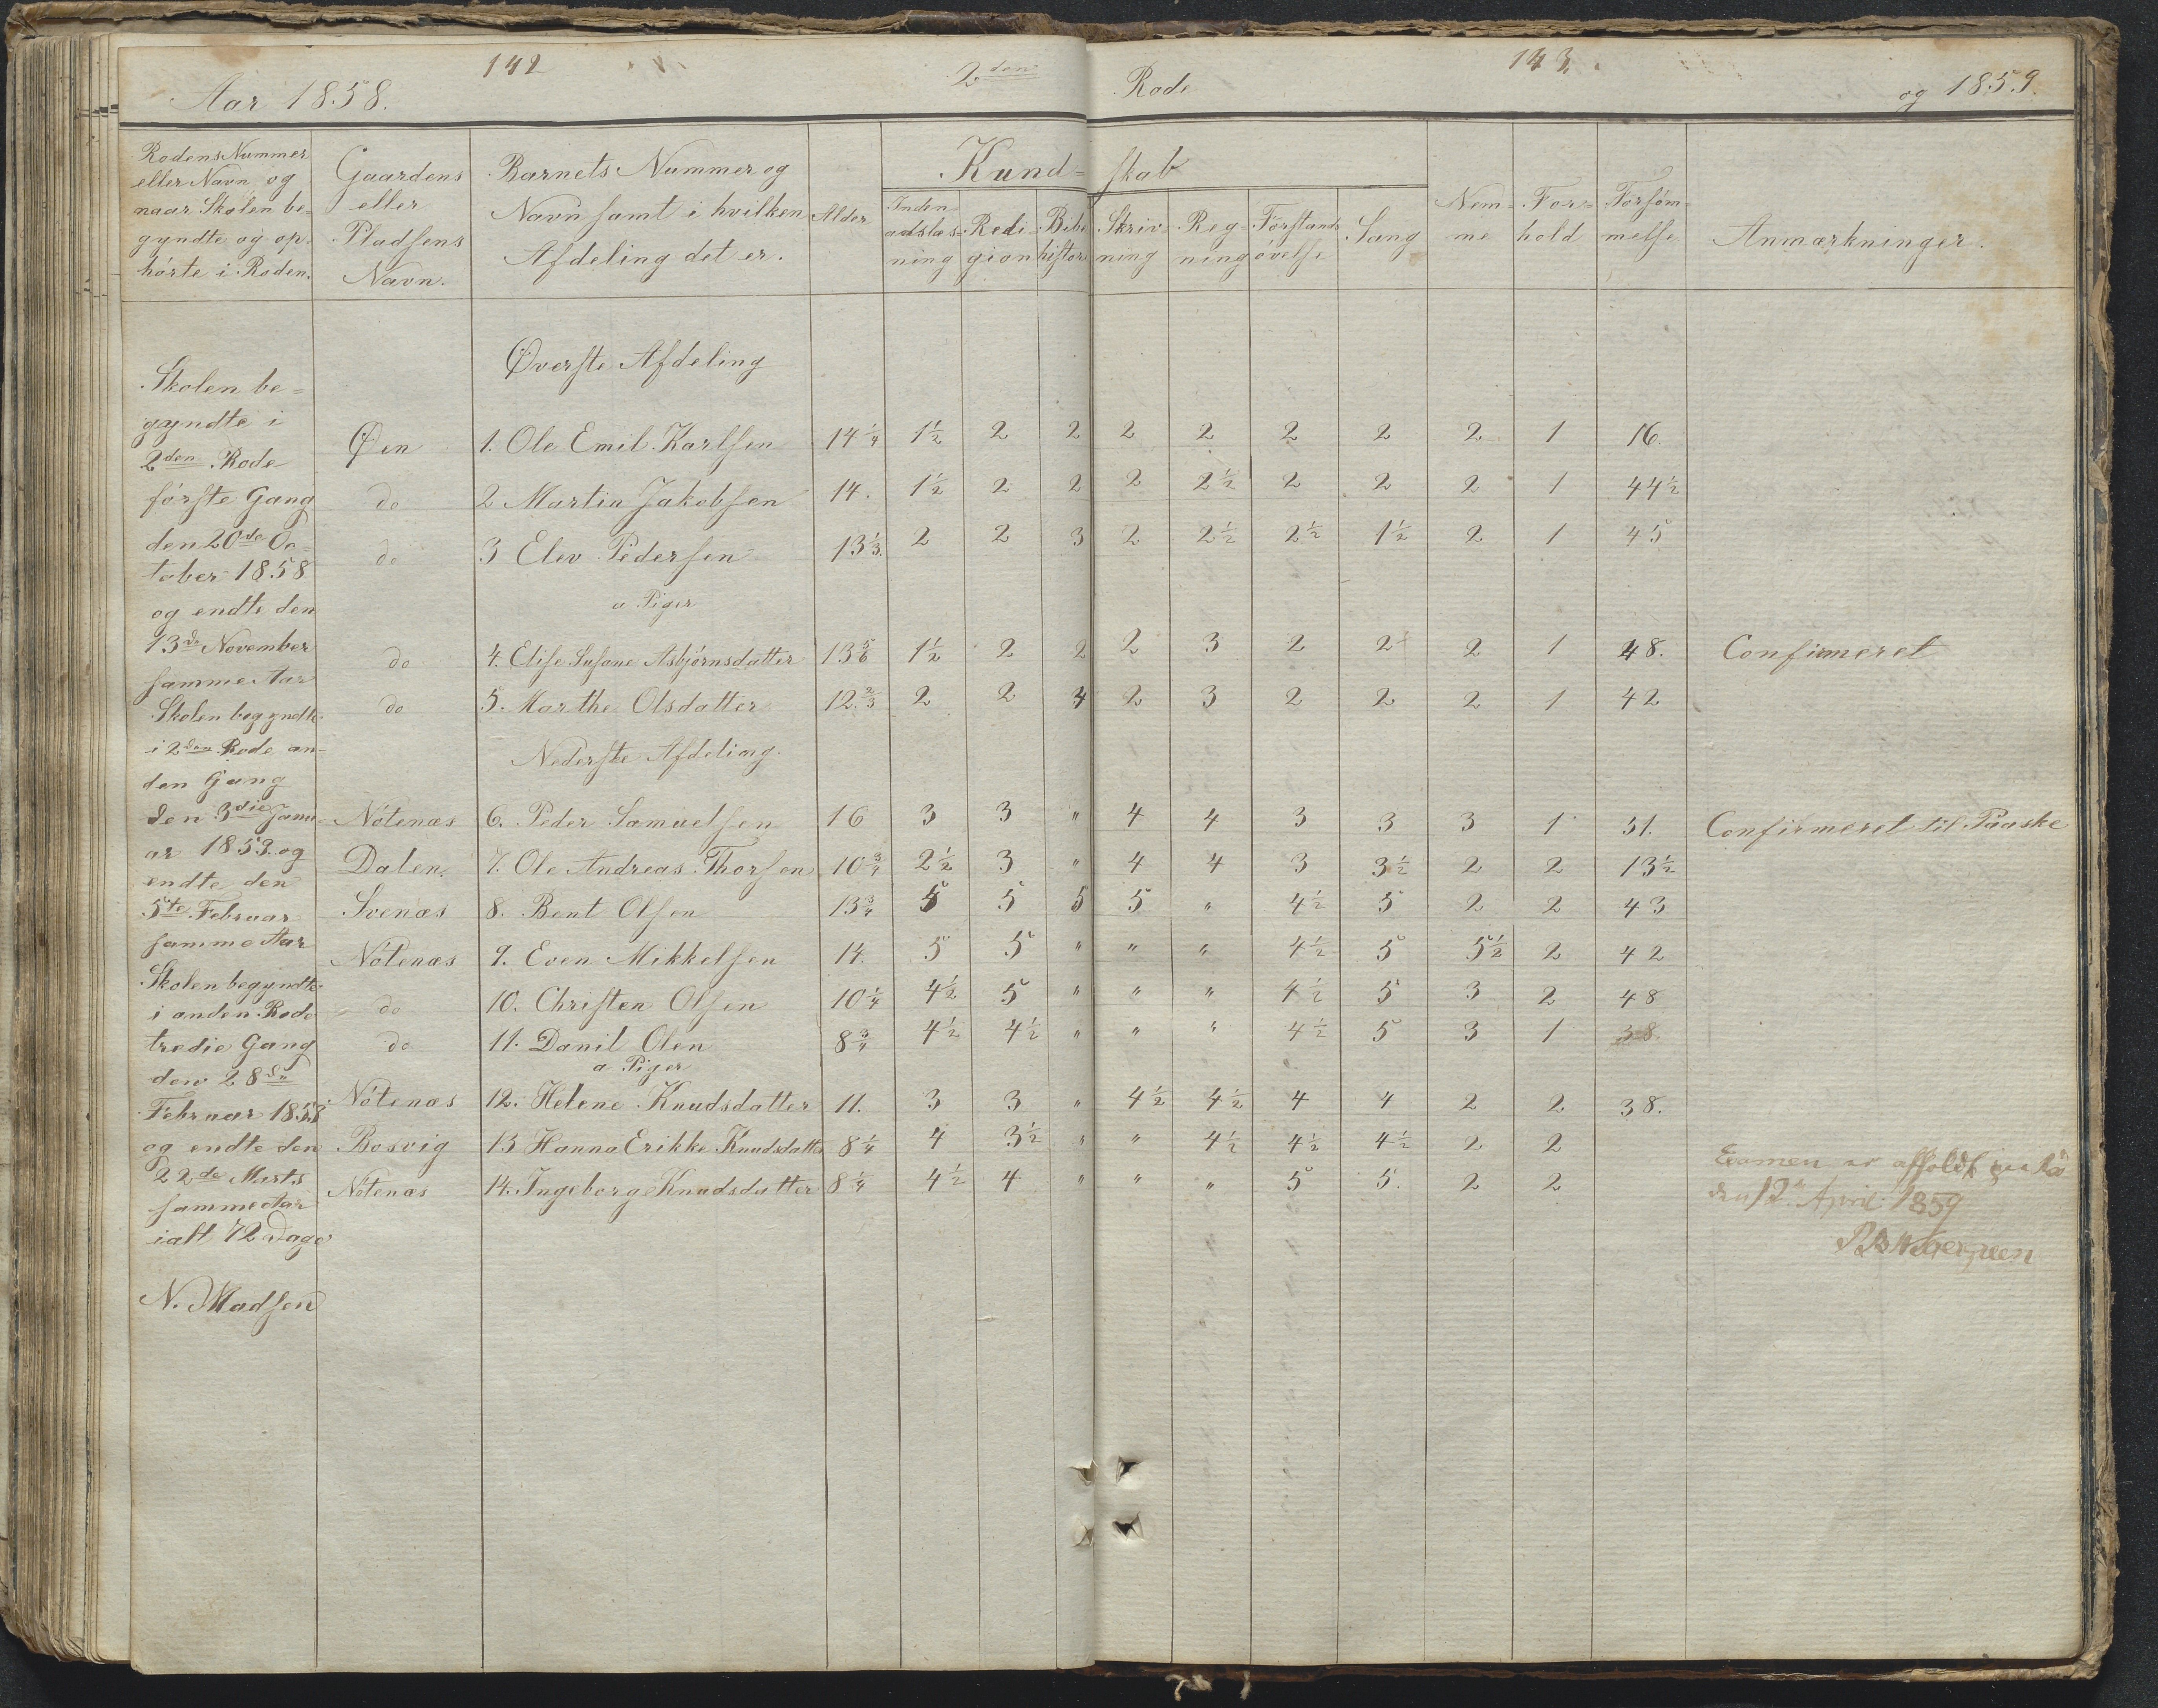 142
143.
Aar 1858.
2den Rode
og 1859.
Rodens Nummer
eller Navn, og
naar Skolen be-
gyndte og op-
hørte i Roden.
Gaardens
eller
Pladsens
Navn.
Barnets Nummer og
Navn samt i hvilken
Afdeling det er.
Alder
Kund- skab
Inden-
adslæs-
ning
Redi-
gion
Bibe
histore
Skriv-
ning
Reg-
ning
Forstands
øvelse
Sang
Nem-
me
For-
hold
Forsøm-
melse
Anmærkninger.
Øverste Afdeling
Øen 1. Ole Emil Karlsen 14 1/4 1 1/2 2 2 2 2 2 2 2 1 16.
do 2 Martin Jakobsen 14. 1 1/2 2 2 2 2 1/2 2 2 2 1 44 1/2
do 3 Elev Pedersen 13 1/3. 2 2 3 2 2 1/2 2 1/2 1 1/2 2 1 45
a Piger
do 4. Elise Susane Asbjørnsdatter 13 5/6 1 1/2 2 2 2 3 2 2 2 1 48. Confirmeret
do 5. Marthe Olsdatter 12 2/3 2 2 4 2 3 2 2 2 1 42
Nederste Afdeling.
Nötenæs 6. Peder Samuelsen 16 3 3 " 4 4 3 3 3 1 31. Confirmeret til Paaske
Dalen. 7. Ole Andreas Thorsen 10 3/4 2 1/2 3 " 4 4 3 3 1/2 2 2 13 1/2
Svenæs 8. Bent Olsen 13 3/4 5 5 5 5 " 4 1/2 5 2 2 43
Nötenæs 9. Even Mikkelsen 14. 5 5 " " " 4 1/2 5 5 1/2 2 42
do 10. Christen Olsen 10 1/4 4 1/2 5 " " " 4 1/2 5 3 2 48
do 11. Danil Olen 8 3/4 4 1/2 4 1/2 " " " 4 1/2 5 3 1 38
a Piger
Nötenæs 12. Helene Knudsdatter 11. 3 3 " 4 1/2 4 1/2 4 4 2 2 38.
Bosvig 13 Hanna Erikke Knudsdatter 8 1/4 4 3 1/2 " " 4 1/2 4 1/2 4 1/2 2 2
Nötenæs 14. Ingeborg Knudsdatter 8 1/4 4 1/2 4 " " " 5 5. 2 2
Skolen be-
gyndte i
2den Rode
første Gang
den 20de Oc-
tober 1858
og endte den
13de November
samme Aar
Skolen begyndte
i 2den Rode an-
den Gang
den 3die Janu-
ar 1859. og
endte den
5te Februar
samme Aar
Skolen begyndte
i anden Rode
tredie Gang
den 28de
Februar 1858
og endte den
22de Marts
samme Aar
ialt 72 Dage
N. Madsen
Examen er afholdt
den 12te April 1859